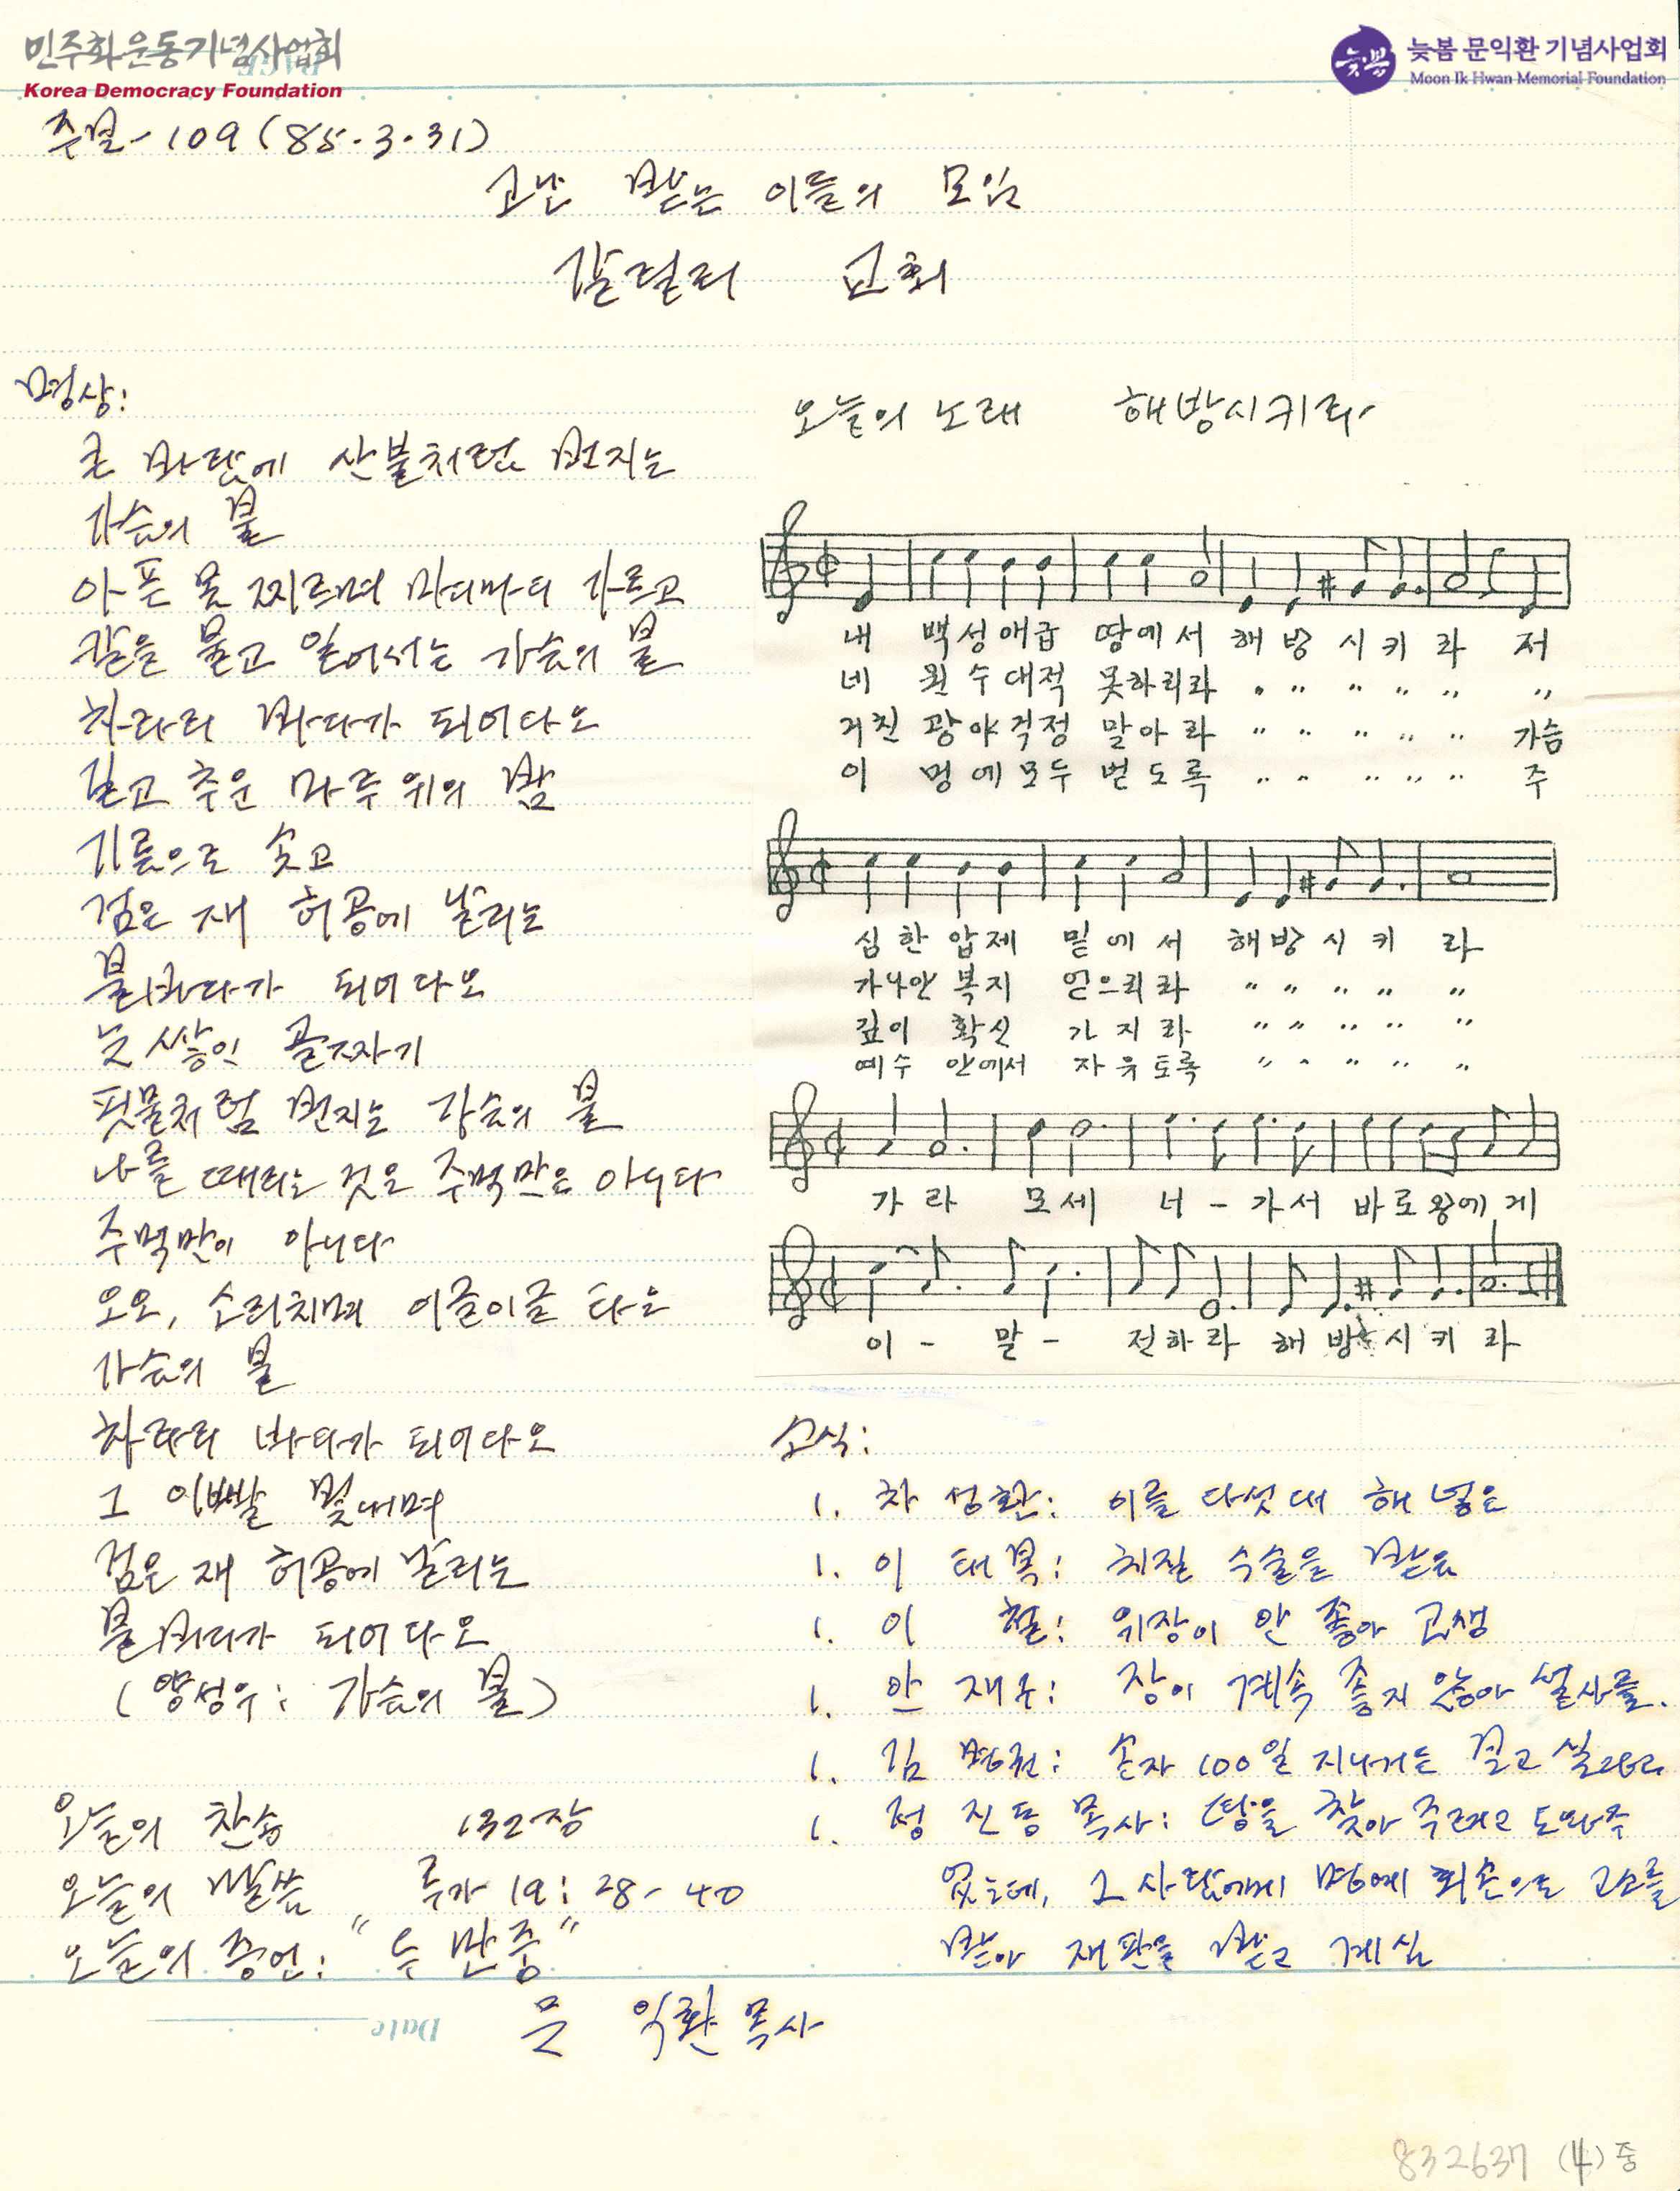 민주화운동기념사업회
Korea Democracy Foundation
늦봄 문익환 기념사업회
Moon Ik Hwan Memorial Foundation
주보-109 (85.3.31)
고난 받는 이들의 모임
갈릴리 교회
명상:
큰 바람에 산불처럼 번지는
가슴의 불
아픈 못 찌르며 마디마디 가르고
칼을 물고 일어서는 가슴의 불
차라리 바다가 되어다오
길고 추운 마루 위의 밤
기름으로 솟고
검은 재 허공에 날리는
불바다가 되어다오
눈 쌓인 골짜기
핏물처럼 번지는 가슴의 불
나를 때리는 것은 주먹만은 아니다
주먹만이 아니다
오오, 소리치며 이글이글 타는
가슴의 불
차라리 바다가 되어다오
그 이빨 빛내며
검은 재 허공에 날리는
불바다가 되어다오
(양성우: 가슴의 불)
오늘의 찬송 132장
오늘의 말씀 루가 19:28-40
오늘의 증언: "두 만종"
문 익환 목사
Date
오늘의 노래 해방시키라
내 백성애급 땅에서 해방 시키 라 저
네 원수대적 못하리라 〃 〃 〃 〃 〃 〃
거친 광야걱정 말아라 〃 〃 〃 〃 〃 가슴
이 멍에모두 벋도록 〃 〃 〃 〃 〃 주
심한압제 밑에서 해방 시키 라
가나안 복지 얻으리라 〃 〃 〃 〃 〃
깊이 확신 가지라 〃 〃 〃 〃 〃
예수 안에서 자유토록 〃 〃 〃 〃 〃
가라 모세 너-가서 바로왕에게
이- 말- 전하라 해방 시키 라
소식:
1. 차 성환: 이를 다섯대 해 넣음
1. 이 태복: 치질 수술을 받음
1. 이 철: 위장이 안 좋아 고생
1. 안 재구: 장이 계속 좋지 않아 설사를.
1. 김 병권: 손자 100일 지나거든 걸고
1. 정 진동 목사: 땅을 찾아 주려고 도와주
었는데, 그 사람에게 명예 회손으로 고소를
받아 재판을 받고 계심
832637 (4)중